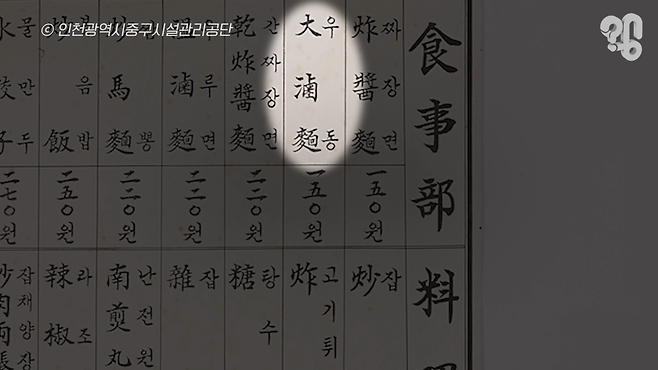 © 인천광역시중구시설관리공단
食事部
料
炸醬麵 짜장면
一五〇원
大滷麵 우동
一五〇원
乾炸醬麵 간짜장면
二二〇원
滷麵 루면
二二〇원
馬麵 뽕
二二〇원
飯 음밥
二五〇원
물만두
二七〇원
炒 잡
炸 고기튀
糖 탕수
雜 잡
南煎丸 난전원
辣椒 라조
炒肉兩張 잡채양장